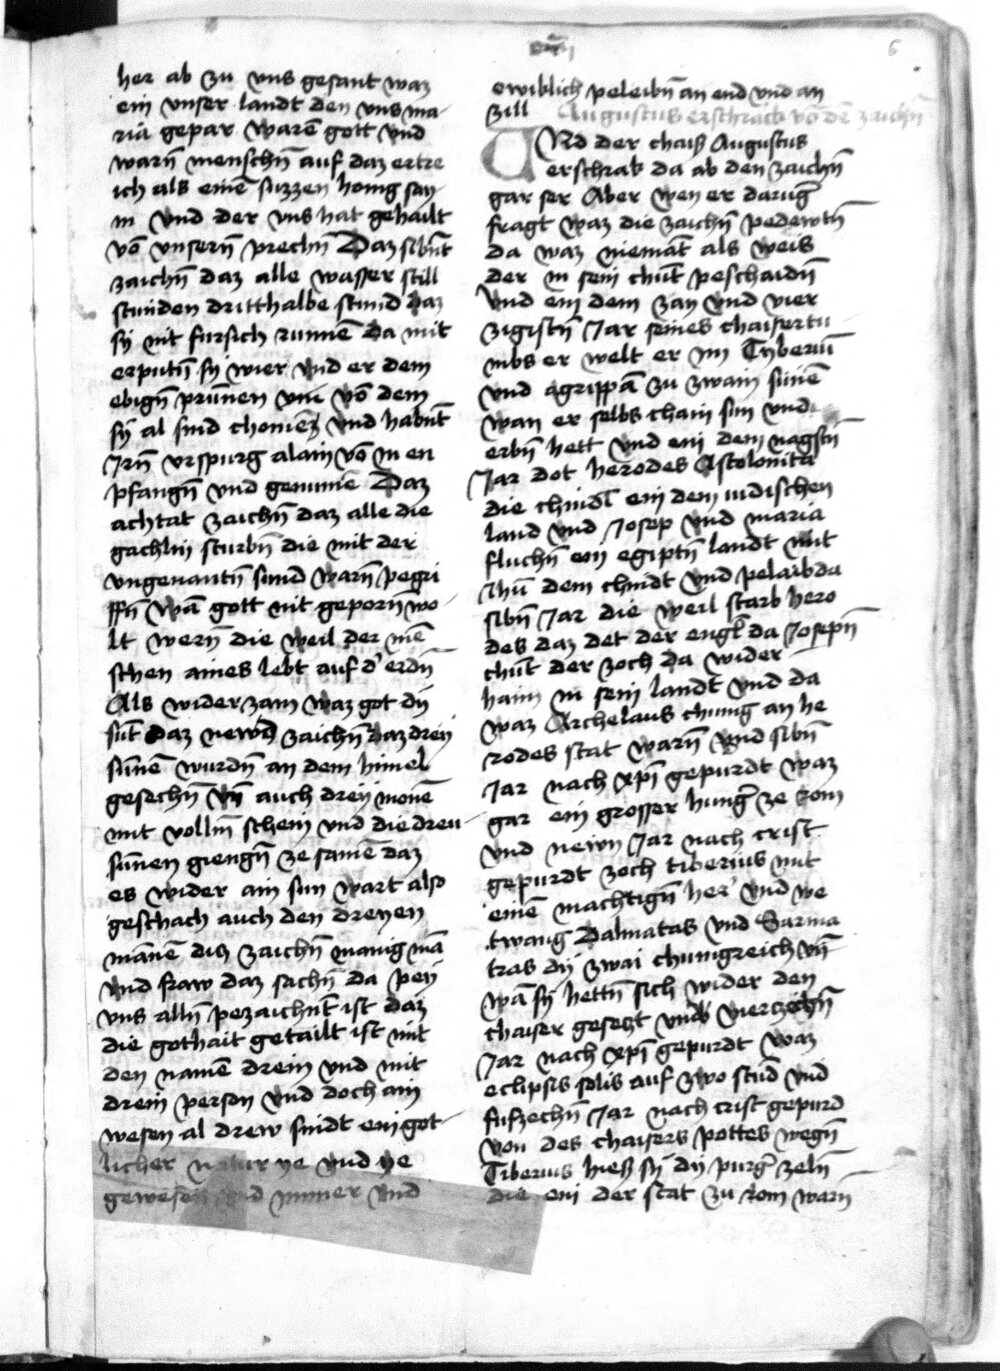 6
her ab zu vns gesant waz
ein vnser landt den vns ma-
ria gepar warē gott vnd
warn̄ menschn̄ auf daz ertre
ich als einē suzzen honig say
in vnd der vns hat gehailt
vō vnsern̄ prechn̄ Daz sibn̄t
zaichn̄ daz alle wasser still
stunden dritthalbe stund daz
sy nit fursich runnē da mit
erputn̄ sy wier vnd er dem
ebign̄ prunnen vō dem
sy al sind chomē vnd habn̄t
Irn̄ vrspurg alain vō in en
pfangn̄ vnd genumē Daz
achtat zaichn̄ daz alle die
gachlin sturbn̄ die mit der
vngenantn̄ sund warn̄ pegri
ffn̄ wā gott nit geporn̄ wo-
lt wern̄ die weil der mē
schen aines lebt auf d' erdn̄
Als widerzam waz got dy
sūt daz newnd zaichn̄ daz drey
sūnē wurdn̄ an dem himel
gesechn̄ vn̄ auch drey monē
mit volln̄ schein vnd die dreu
sūnen giengn̄ ze samē daz
es wider ain sun wart also
geschach auch den dreyen
mānē diz zaichn̄ manig mā
vnd fraw daz sachn̄ da pey
vns alln̄ pezaichn̄t ist daz
die gothait getailt ist mit
den namē drein vnd mit
drein person vnd doch ain
wesen al drew sindt ein got-
licher natur ye vnd ye
gewesen vnd ymmer vnd
ewiblich peleibn̄ an end vnd an
zill Augustus erschrack vō dē zaichn̄
VNd der chaiß Augustus
erschrak da ab den zaichn̄
gar ser Aber wen er darug
fragt waz die zaichn̄ pedewtn̄
da waz niemāt als weis
der in sein chūt peschaidn̄
vnd ein dem zan vnd vier
zigistn̄ Jar seines chaisertu
mbs er welt er im Tyberiū
vnd agrippā zu zwain sunē
wan er selbs chain sun vnd
erbn̄ hett vnd ein dem nagstn̄
Jar dot herodes Ascolonita
die chindl ein dem iudischen
land vnd Josep vnd maria
fluchn̄ ein egiptn̄ landt mit
Jhū dem chindt vnd pelaib da
sibn̄ Jar die weil starb hero
des daz det der engl̄ da Josepn̄
chūt der zoch da wider
haim in sein landt vnd da
waz Archelaus chunig an he
rodes stat warn̄ vnd sibn̄
Jar nach xp̄i gepurdt waz
gar ein grosser hung' ze rom
vnd newn Jar nach crist
gepurdt zoch tiberius mit
einē machtign̄ her vnd we
twang Dalmatas vnd Sarma
tras dy zwai chunigreich vn̄
wā sy hettn̄ sich wider den
chaiser gesetzt vnd vierzechn̄
Jar nach xp̄i gepurdt waz
eclipsis solis auf zwo stūd vnd
fufzechn̄ Jar nach crist gepurd
von des chaisers pottes wegn̄
Tiberius hieß sy dy purg' zeln̄
die ein der stat zu rom warn̄